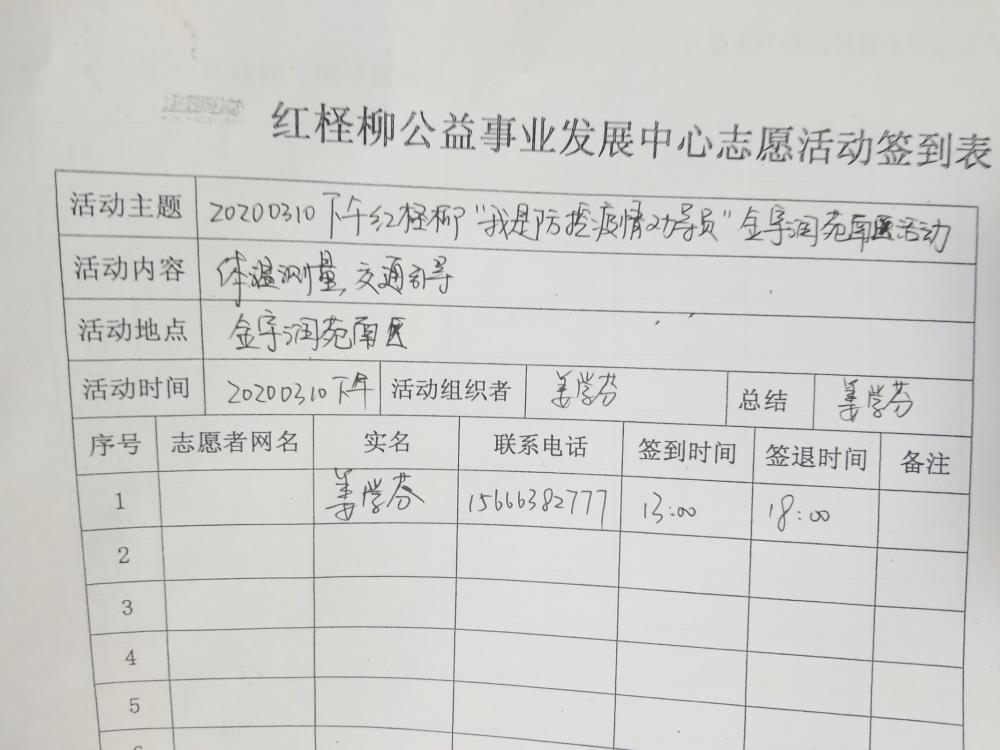 红柽柳公益事业发展中心志愿活动签到表
活动主题 20200310下午红柽柳“我是防控疫情劝导员”金宇润苑南区活动
活动内容 体温测量,交通引导
活动地点 金宇润苑南区
活动时间 20200310下午 活动组织者 姜学芬 总结 姜学芬
序号 志愿者网名 实名 联系电话 签到时间 签退时间 备注
1 姜学芬 15666382777 13:00 18:00
2
3
4
5